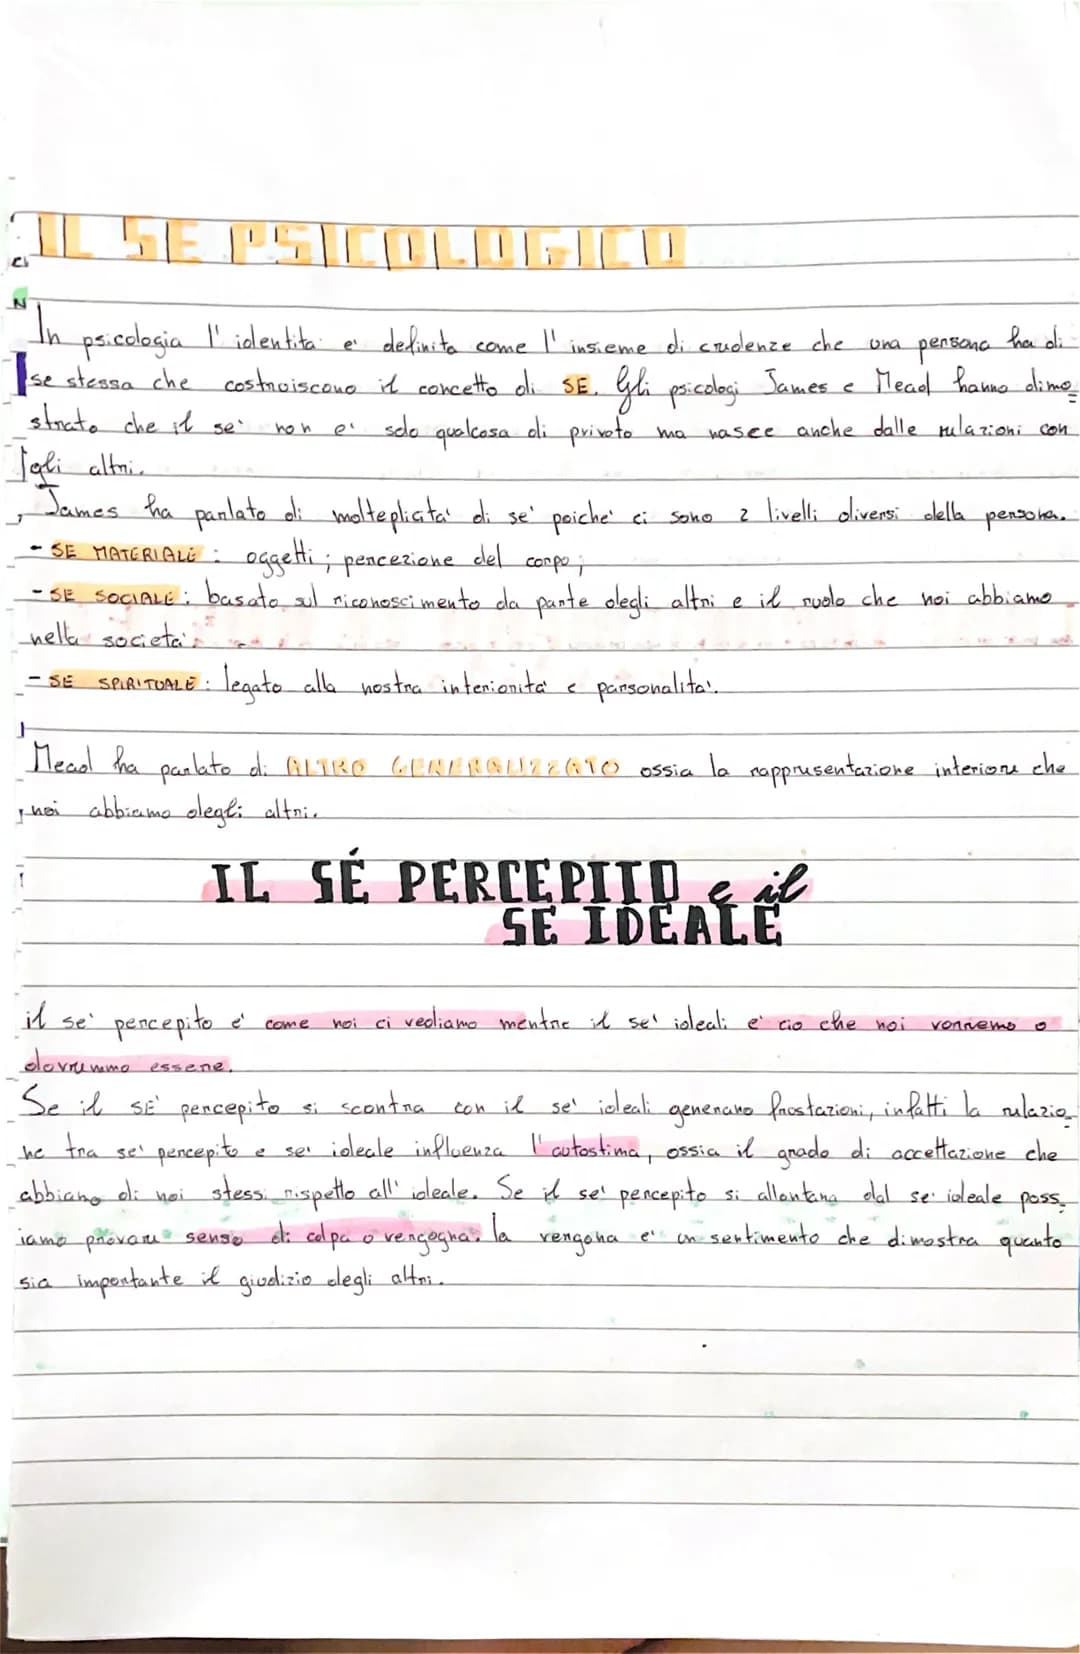 IL SE PSICOLOGICO
In psicologia l'identita' e' definita come l'insieme di crudenze che una persona ha di
se stessa che costruiscono il concetto di SE. Gli psicologi James e Mead hanno dimo
strato che il se' non e' solo qualcosa di privato ma nasce anche dalle relazioni con
gli altri.
James ha parlato di molteplicita' di se' poiche' ci sono 2 livelli diversi della persona.
- SE MATERIALE : oggetti ; percezione del corpo ;
- SE SOCIALE : basato sul riconoscimento da parte degli altri e il ruolo che noi abbiamo
nella societa'.
- SE SPIRITUALE : legato alla nostra interiorita' e parsonalita'.
Mead ha parlato di ALTRO GENERALIZZATO ossia la rappresentazione interiore che
noi abbiamo degli altri.
IL SÉ PERCEPITO e il
SE IDEALE
il se' percepito e' come noi ci vediamo mentre il se' ideali e' cio che noi vorremo o
dovremmo essere.
Se il SE' percepito si scontra con il se' ideali generano frostazioni, infatti la relazio
ne tra se' percepito e se' ideale influenza l'autostima, ossia il grado di accettazione che
abbiamo di noi stessi rispetto all'ideale. Se il se' percepito si allontana dal se' ideale poss
iamo provare senso di colpa o vergogna. la vengona e' un sentimento che dimostra quanto
sia importante il giudizio degli altri.